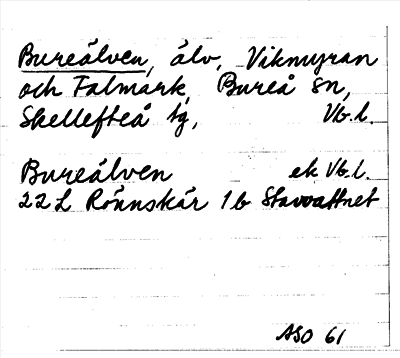 Bureälven, älv, Vikmyran
och Falmark, Bureå sn,
Skellefteå tg, Vb.l.
Bureälven ek Vb.l.
22 L Rönnskär 1b Stavvattnet
ASO 61